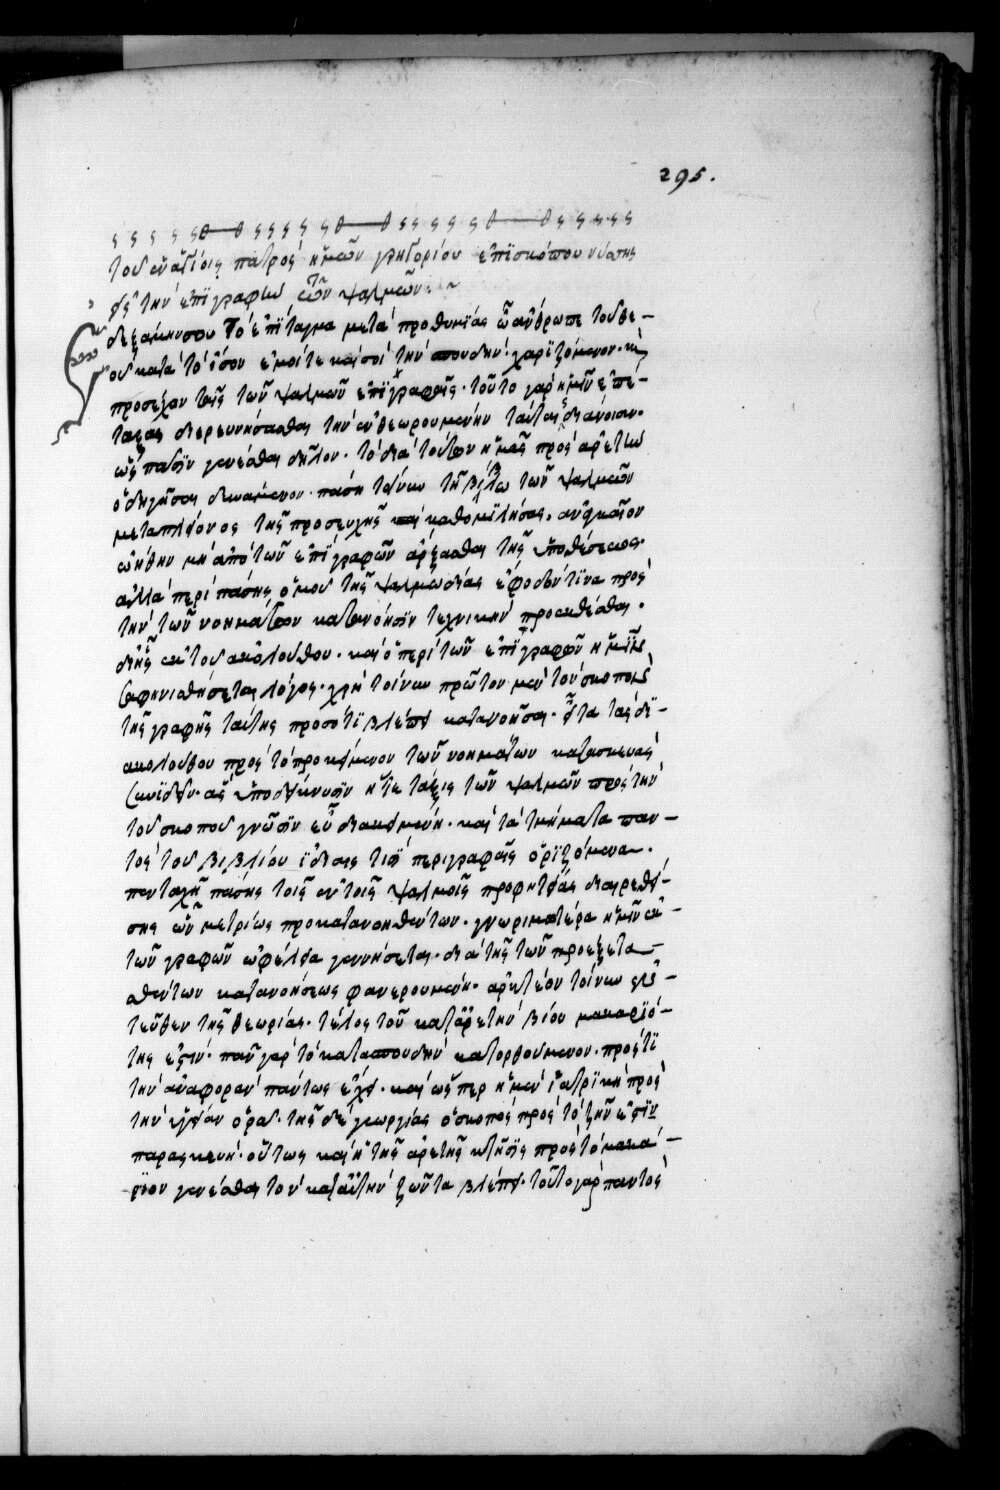 295.
τοῦ ἐν ἁγίοις πατρὸς ἡμῶν γρηγορίου ἐπϊσκόπου νύσσης
εἰς τὴν ἐπϊγραφὴν τῶν ψαλμῶν:~
δεξάμην σου Τὸ ἐπϊταγμα μετὰ προθυμϊας ὦ ἄνθρωπε τοῦ θε-
οῦ κατὰ τὸ ἴσον ἐμοί τε καὶ σοὶ τὴν σπουδὴν χαρϊζόμενον. καὶ
προσέχον ταῖς τῶν ψαλμῶν ἐπϊγραφαῖς. τοῦτο γὰρ ἡμῖν ἐπέ-
ταξας διερευνήσασθαι τὴν ἐνθεωρουμένην ταύταις διάνοιαν.
ὡς πᾶσϊν γενέσθαι δῆλον. τὸ διὰ τούτων ἡμᾶς πρὸς ἀρετὴν
ὁδηγῆσαι δυνάμενον. πάσῃ τοίνυν τῇ βίβλω τῶν ψαλμῶν
μετὰ πλείονος τῆς προσευχῆς καθομϊλήσας, ἀναγκαῖον
ὠήθην μὴ ἀπὸ τῶν ἐπϊγραφῶν ἄρξασθαι τῆς ὑποθέσεως.
ἀλλὰ περὶ πάσης ὁμοῦ τῆς ψαλμωδίας ἔφοδόν τϊνα πρὸς
τὴν τῶν νοημάτων κατανόησϊν τεχνικὴν προεκθέσθαι.
δι' ἧς ἐκ τοῦ ἀκολούθου. καὶ ὁ περὶ τῶν ἐπϊγραφῶν ἡμῖν
σαφηνισθήσεται λόγος. χρὴ τοίνυν πρῶτον μὲν τὸν σκοπὸν
τῆς γραφῆς ταύτης πρὸς ὅ τϊ βλέπει κατανοῆσαι. εἶτα τὰς δϊ-
ακολούθου πρὸς τὸ προκείμενον τῶν νοημάτων κατασκευὰς
συνϊδεῖν. ἃς ὑποδείκνυσϊν ἥ τε τάξις τῶν ψαλμῶν πρὸς τὴν
τοῦ σκοποῦ γνῶσϊν εὖ διακειμένη. καὶ τὰ τμήματα παν-
τὸς τοῦ βιβλίου ἰδίαις τισϊ περιγραφαῖς ὁρϊζόμενα.
πενταχῇ πάσης τῆς ἐν τοῖς ψαλμοῖς προφητείας διαιρεθεί-
σης ὧν μετρίως προκατανοηθέντων. γνωριμωτέρα ἡμῖν ἐκ
τῶν γραφῶν ὠφέλεια γεννήσεται. διὰ τῆς τῶν προεξετα-
σθέντων κατανοήσεως φανερουμένη. ἀρκτέον τοίνυν ἐν-
τεῦθεν τῆς θεωρίας. τέλος τοῦ κατ' ἀρετὴν βίου μακαρϊό-
της ἐστϊν. πᾶν γὰρ τὸ κατασπουδὴν κατορθούμενον. πρός τϊ
τὴν ἀναφορὰν πάντως ἔχει. καὶ ὥσπερ ἡ μὲν ἰατρϊκὴ πρὸς
τὴν ὑγείαν ὁρᾶ. τῆς δὲ γεωργίας ὁ σκοπὸς πρὸς τὸ ζῆν ἐστϊν
παρασκευή. οὕτως καὶ ἡ τῆς ἀρετῆς κτῆσϊς πρὸς τὸ μακά-
ριον γενέσθαι τὸν κατ' αὐτὴν ζῶντα βλέπει. τοῦτο γὰρ παντὸς